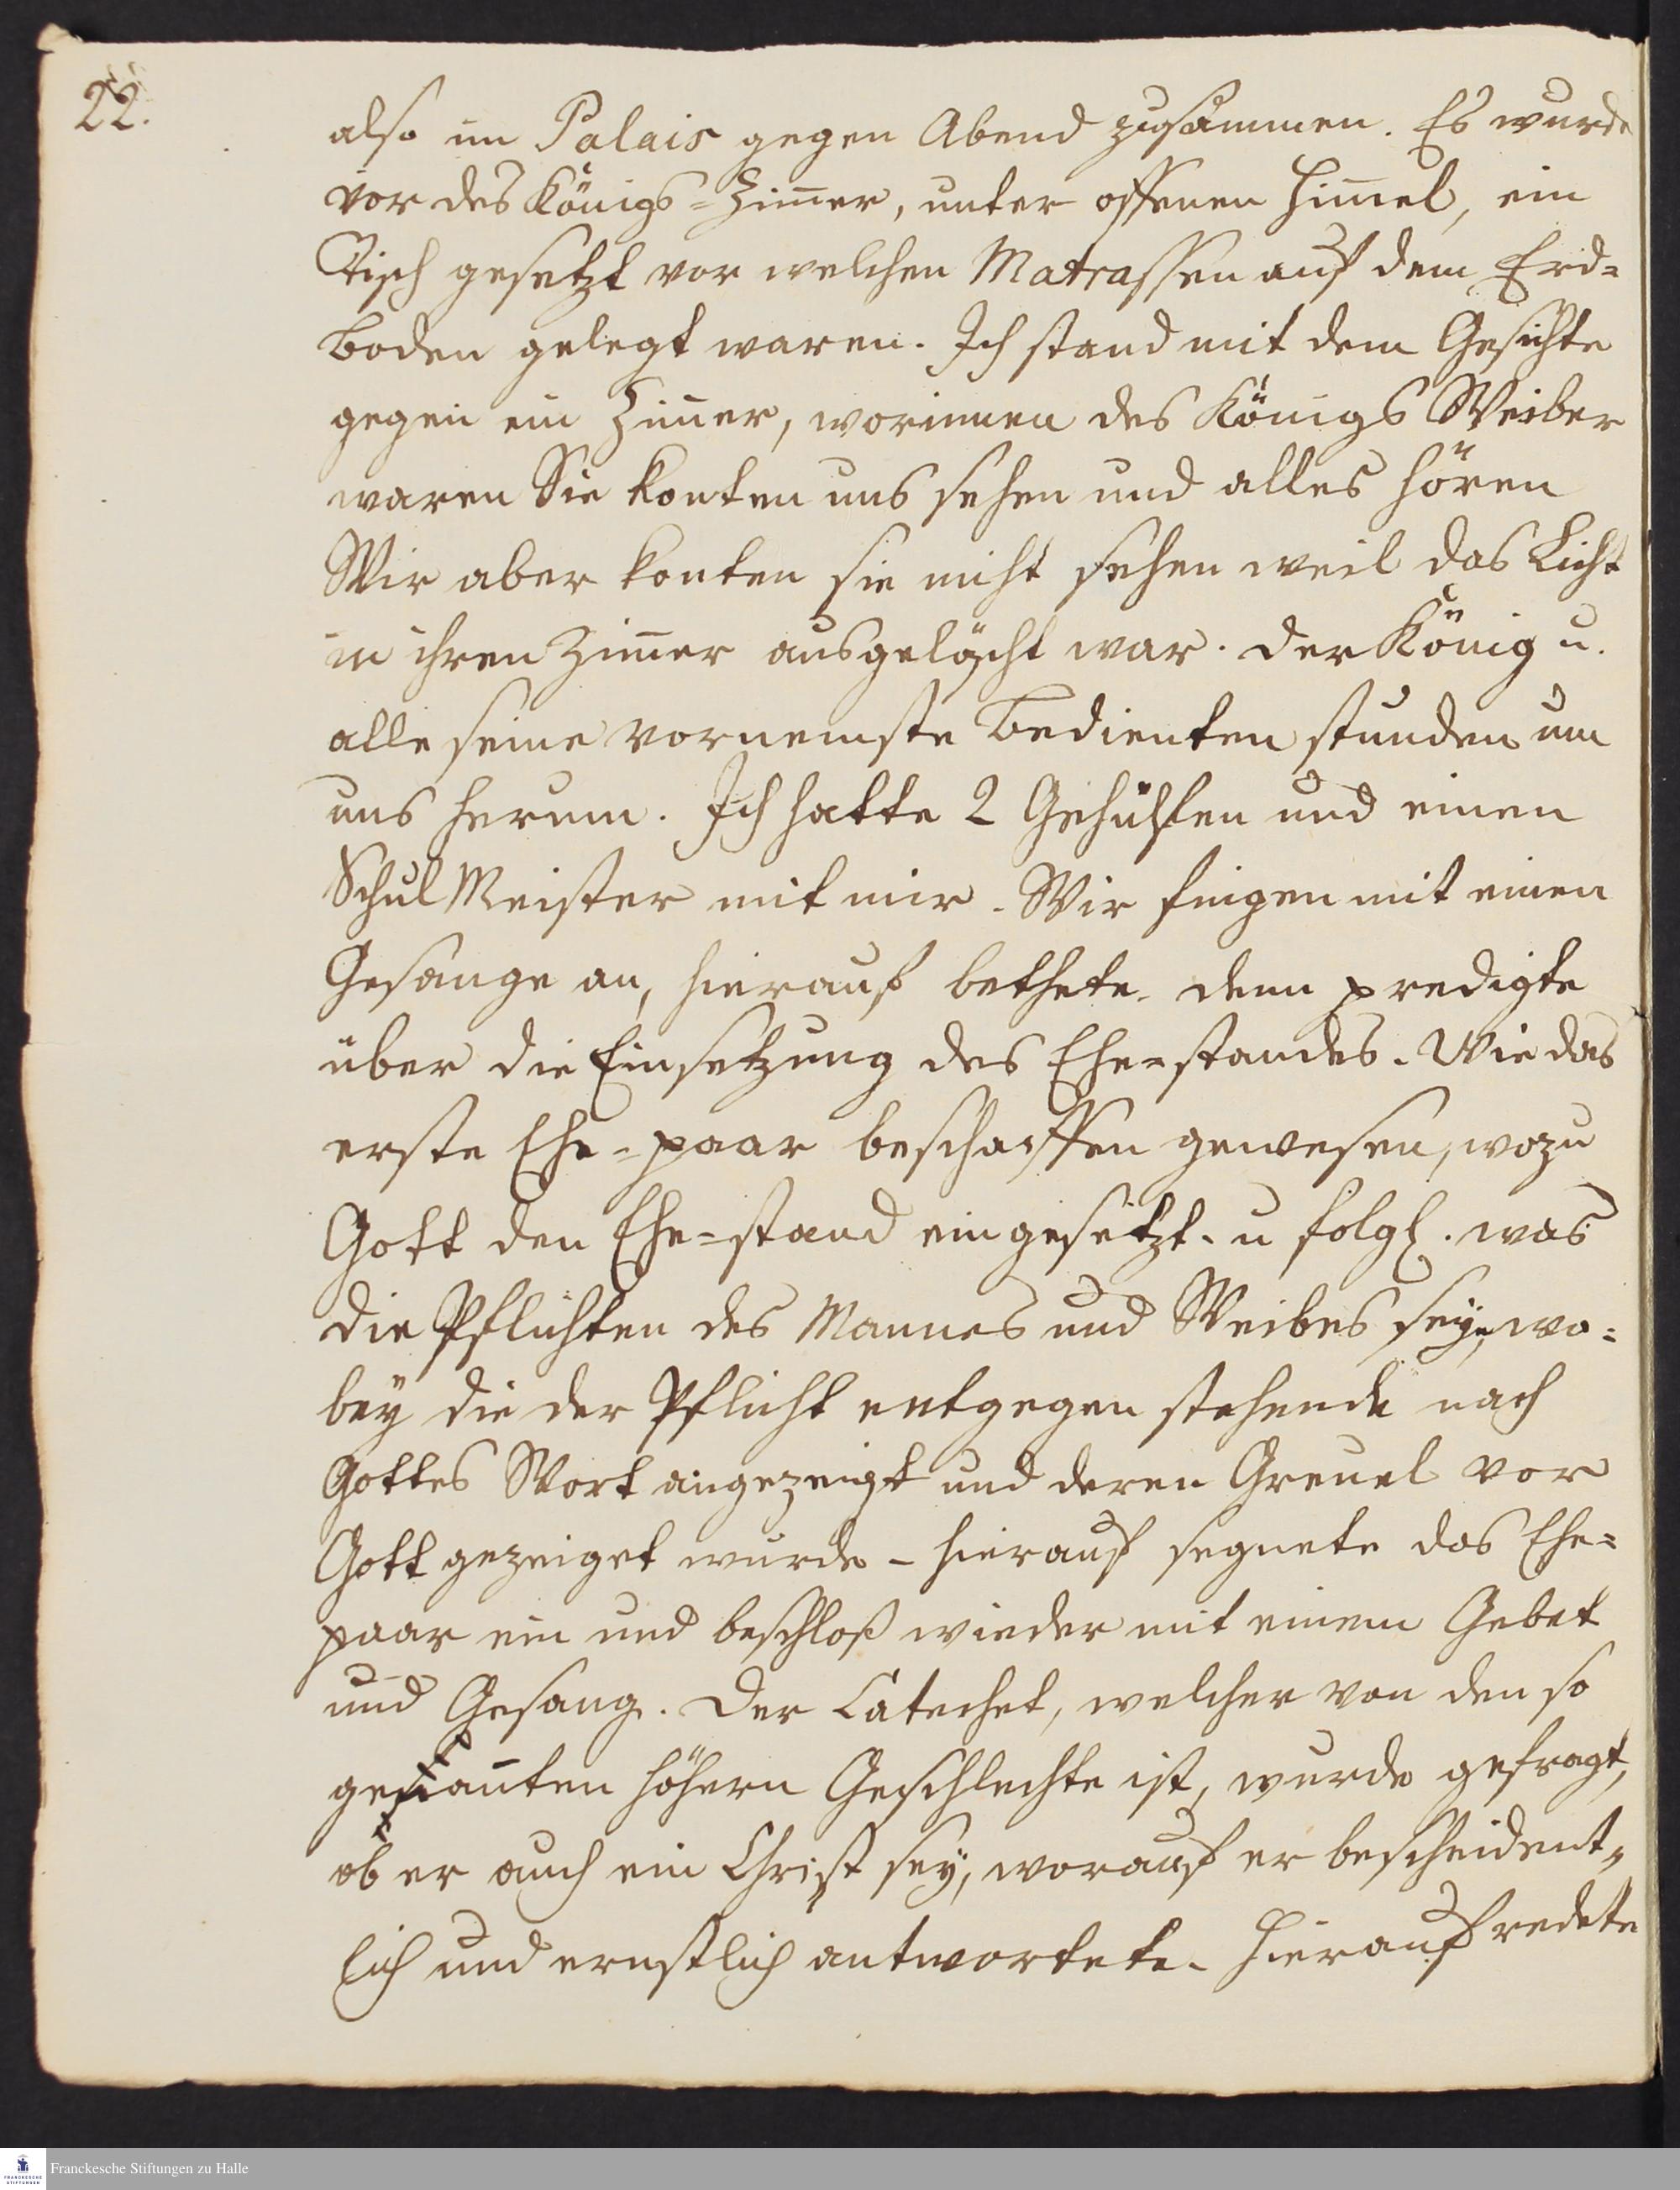 22.
also im Palais gegen Abend zusammen. Es wurde
vor des Königs-Zim̄er, unter offenen Him̄el, ein
Tisch gesetzt vor welchen Matrassen auf dem Erd=
boden gelegt waren. Ich stand mit dem Gesichte
gegen ein Zim̄er, worinnen des Königs Weiber
waren Sie konten uns sehen und alles hören
Wir aber konten sie nicht sehen weil das Licht
in ihren Zim̄er ausgelöscht war. der König u.
alle seine vornemste Bedienten stunden um
uns herum. Ich hatte 2 Gehülfen und einen
Schul Meister mit mir. Wir fingen mit einen
Gesange an, hierauf bethete. denn predigte
über die Einsetzung des Ehe=standes. Wie das
erste Ehe=paar beschaffen gewesen, wozu
Gott den Ehe=stand eingesetzt. u folgl. was
die Pflichten des Mannes und Weibes seyn, wo=
bey die der Pflicht entgegen stehende nach
Gottes Wort angezeigt und deren Greuel vor
Gott gezeiget wurde – hierauf segnete das Ehe=
paar ein und beschloß wieder mit einem Gebet
und Gesang. Der Catechet, welcher von den so
genan̄ten höhern Geschlechte ist, wurde gefragt,
ob er auch ein Christ sey, worauf er bescheident=
lich und ernstlich antwortete. Hierauf redete
Franckesche Stiftungen zu Halle
FRANCKESCHE
STIFTUNGEN